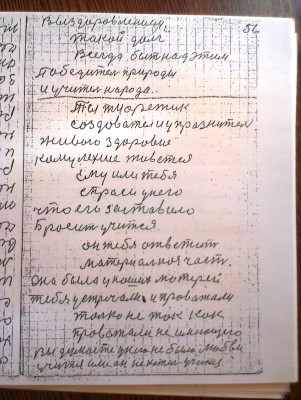 выздоровлением, 56
такой долг
всегда быт надэтим
победител природы
и учител народа.
Ты теоретик
создовател и упразнител
живого здоровие
кому лехше живется
ему или тебя
спраси унего
что его заставило
бросит учится.
он тебя ответит
материалноя част.
она была у наших матерей
тебя устречали и проважали
толко не так как
проважали не имиющего
вы думаете унего не было любви
учится или он нехотел учится